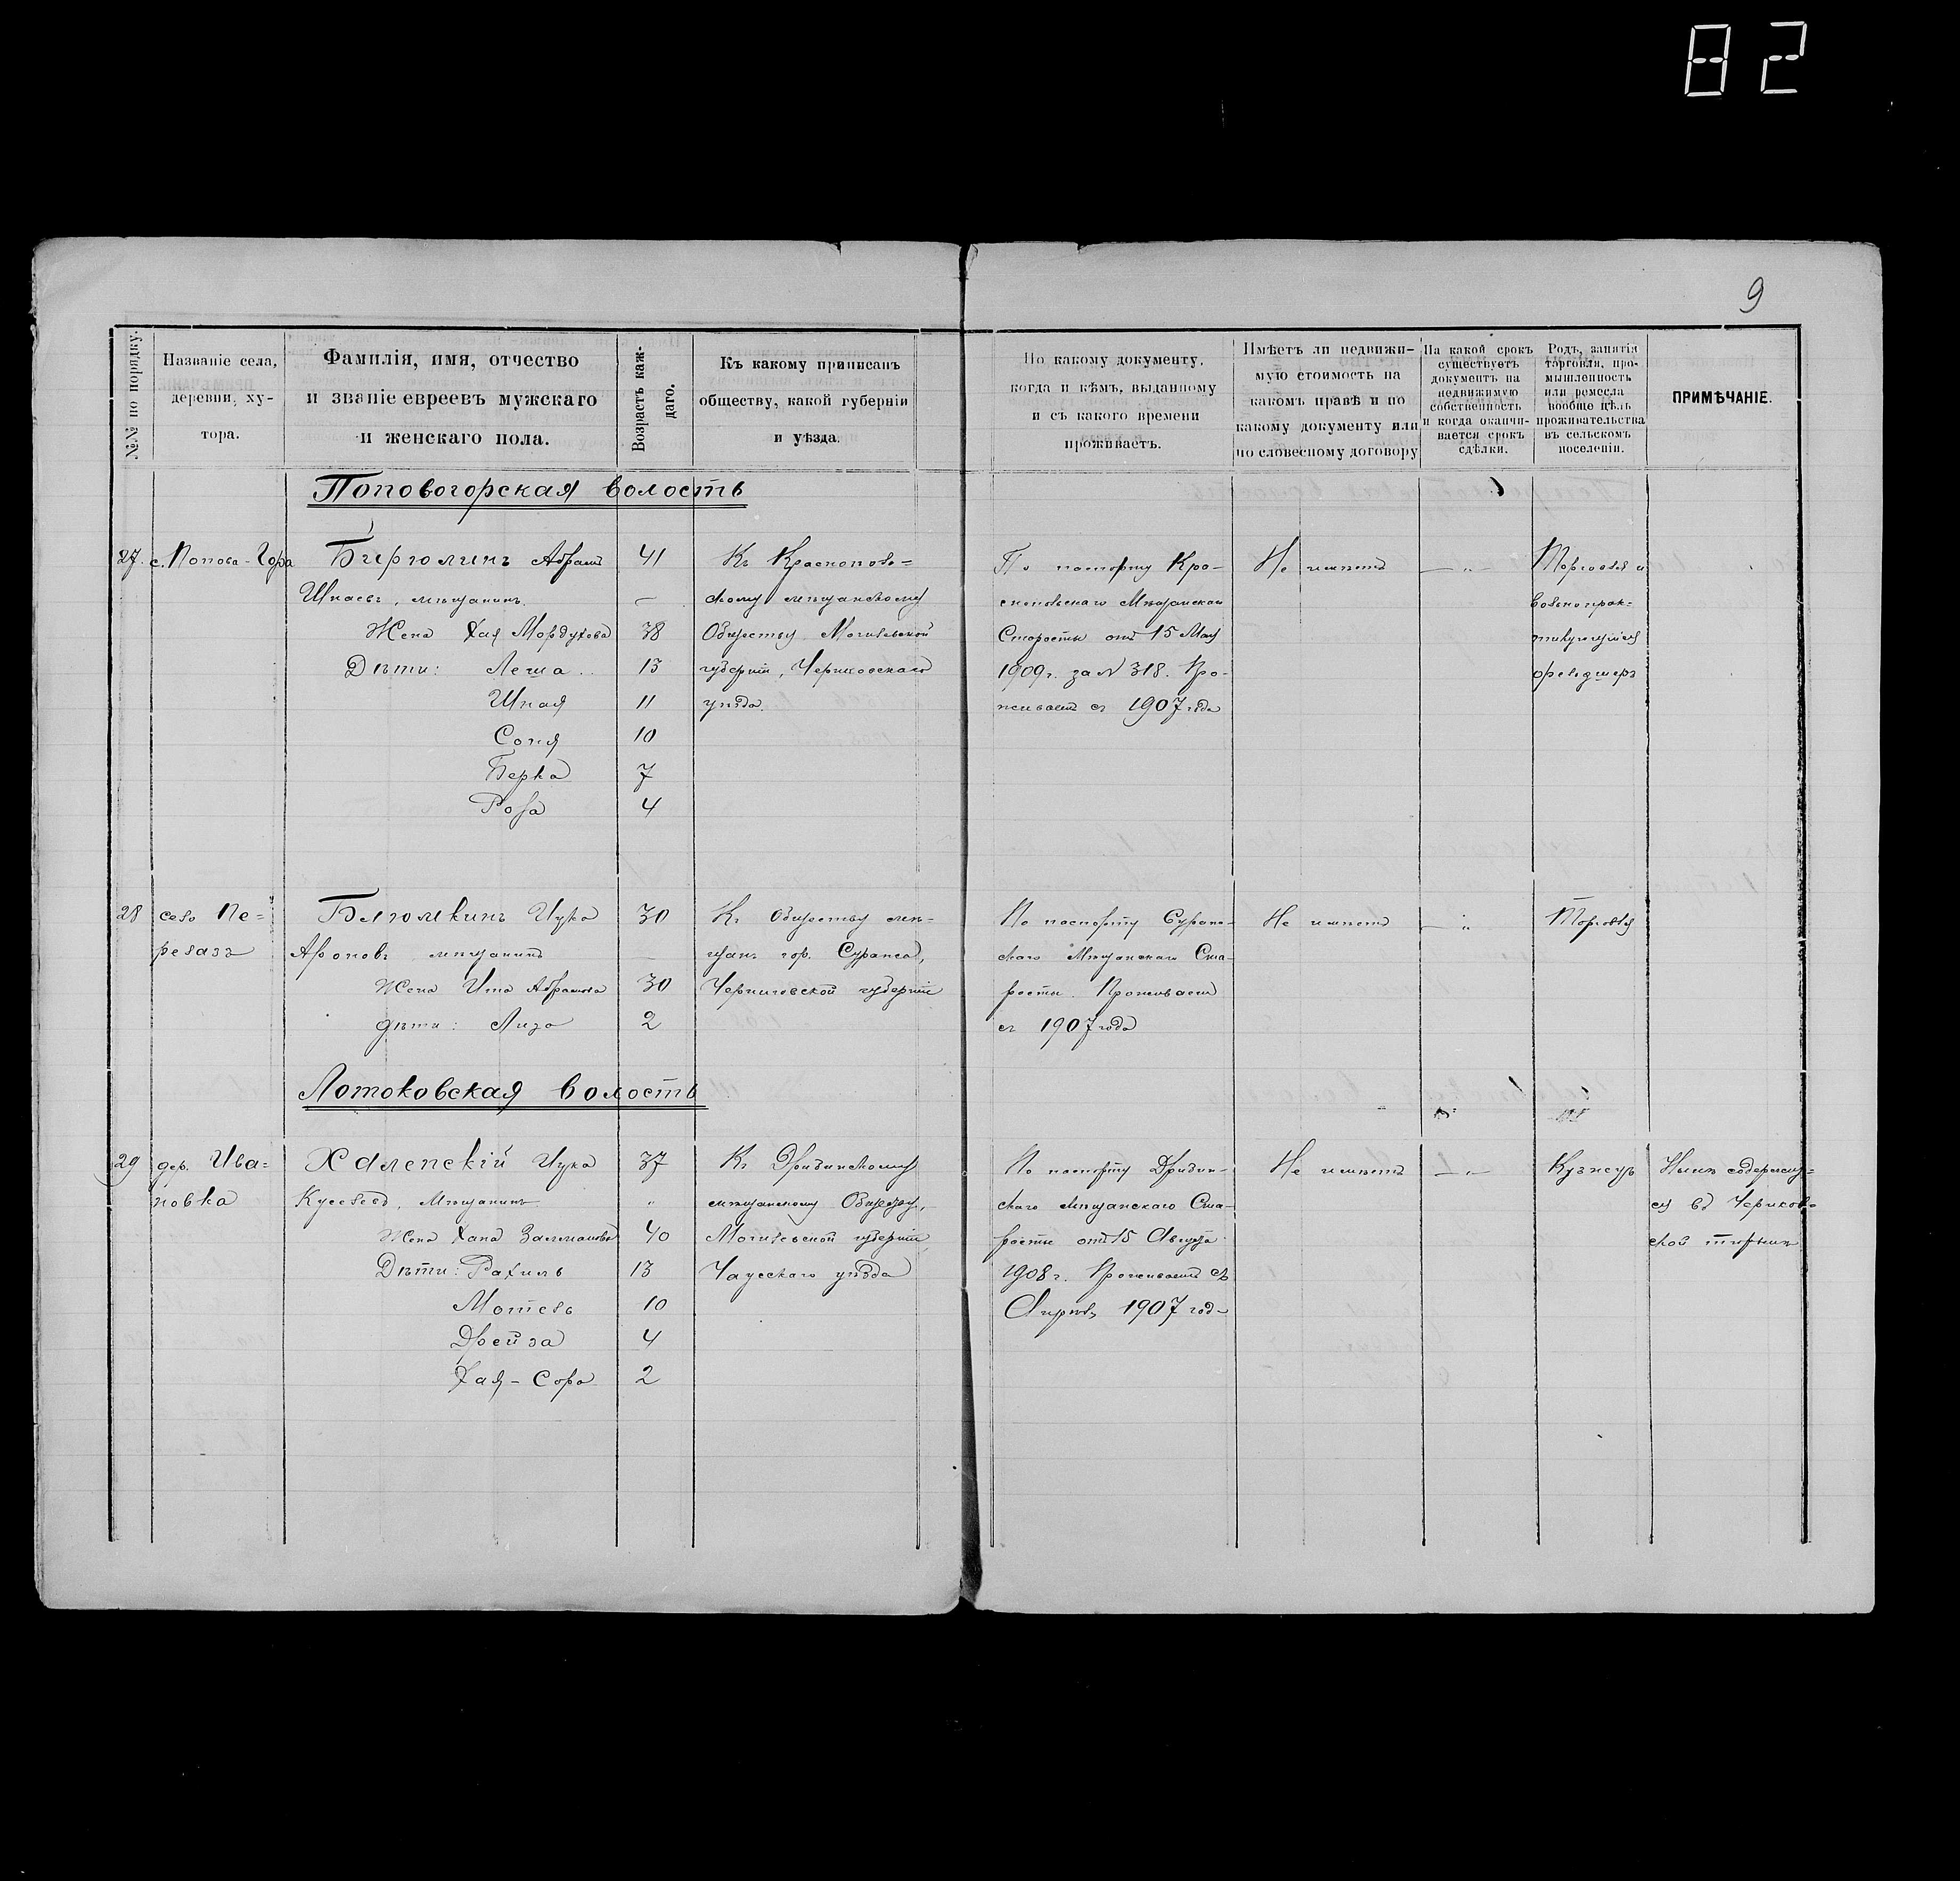 82
9
№№ по порядку.
Названіе села,
деревни, ху-
тора.
Фамилія, имя, отчество
и званіе евреевъ мужскаго
и женскаго пола.
Возрастъ каж-
даго.
Къ какому приписанъ
обществу, какой губерніи
и уѣзда.
По какому документу,
когда и кѣмъ, выданному
и съ какого времени
проживаетъ.
Имѣетъ ли недвижи-
мую стоимость на
какомъ правѣ и по
какому документу или
по словесному договору
На какой срокъ
существуетъ
документъ на
недвижимую
собственность
и когда оканчи-
вается срокъ
сдѣлки.
Родъ, занятія
торговли, про-
мышленность
или ремесла
вообще цѣль
проживательства
въ сельскомъ
поселеніи.
ПРИМѢЧАНІЕ.
Поповогорская волость
27. с. Попова-Гора
Абрамъ
Шпаевъ, мѣщанинъ
Жена Хая Мордухова
Дѣти: Леша
Шпая
Соня
Берка
Роза
41
—
38
13
11
10
7
4
Къ Краснополь=
скому мѣщанскому
Обществу Могилевской
губерніи, Чериковскаго
уѣзда.
По паспорту Кра-
снопольскаго Мѣщанскаго
Старосты отъ 15 Мая
1909 г. за № 318. Про-
живаетъ съ 1907 года
Не имѣетъ
— „ —
Торговля и
вольнопрак-
тикующій
фельдшеръ
28 село Пе=
релазъ
Ицка
Ароновъ мѣщанинъ
Жена Ита Абрамова
дѣти: Лиза
30
—
30
2
Къ Обществу мѣ-
щанъ гор. Суража,
Черниговской губерніи
По паспорту Сураж-
скаго Мѣщанскаго Ста-
росты. Проживаетъ
съ 1907 года
Не имѣетъ
— „
Торговля
Лотоковская волость
29 дер. Ива=
новка
Халепскій Ицка
мѣщанинъ
Жена Хана Залманова
Дѣти: Рахиль
Мотель
Дрейза
Хая-Сора
37
„
40
13
10
4
2
Къ Дрибинскому
мѣщанскому Обществу,
Могилевской губерніи
Чаусскаго уѣзда
По паспорту Дрибин-
скаго мѣщанскаго Ста-
росты отъ 15 Августа
1908 г. Проживаетъ съ
Апрѣля 1907 года
Не имѣетъ
— „ —
Кузнецъ
Нынѣ содержит=
ся въ Чериков-
ской тюрьмѣ